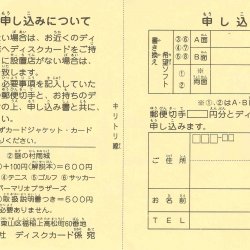 申し込みについて
ない場合は、お近くのディ
へディスクカードをご持
に設置店がない場合は、
致します。
必要事項を記入していた
郵便切手と、お持ちのデ
の上、申し込み書と共に、
い。
ずカードジャケット・カード
ださい。
②謎の村雨城
円+100円(解説本)=600円
④テニス⑤ゴルフ⑥サッカー
パーマリオブラザーズ
の取扱説明書つき=600円
必要ありません。
東山区福稲上高松町60番地
社 ディスクカード係 宛
キリトリ線
申し込
書き換え
希望ソフト
①
③⑥
④⑦
⑤⑧
A面
B面
※①、②はA・B
郵便切手 円分とディ
申し込みます。
ご住所
お名前
TEL